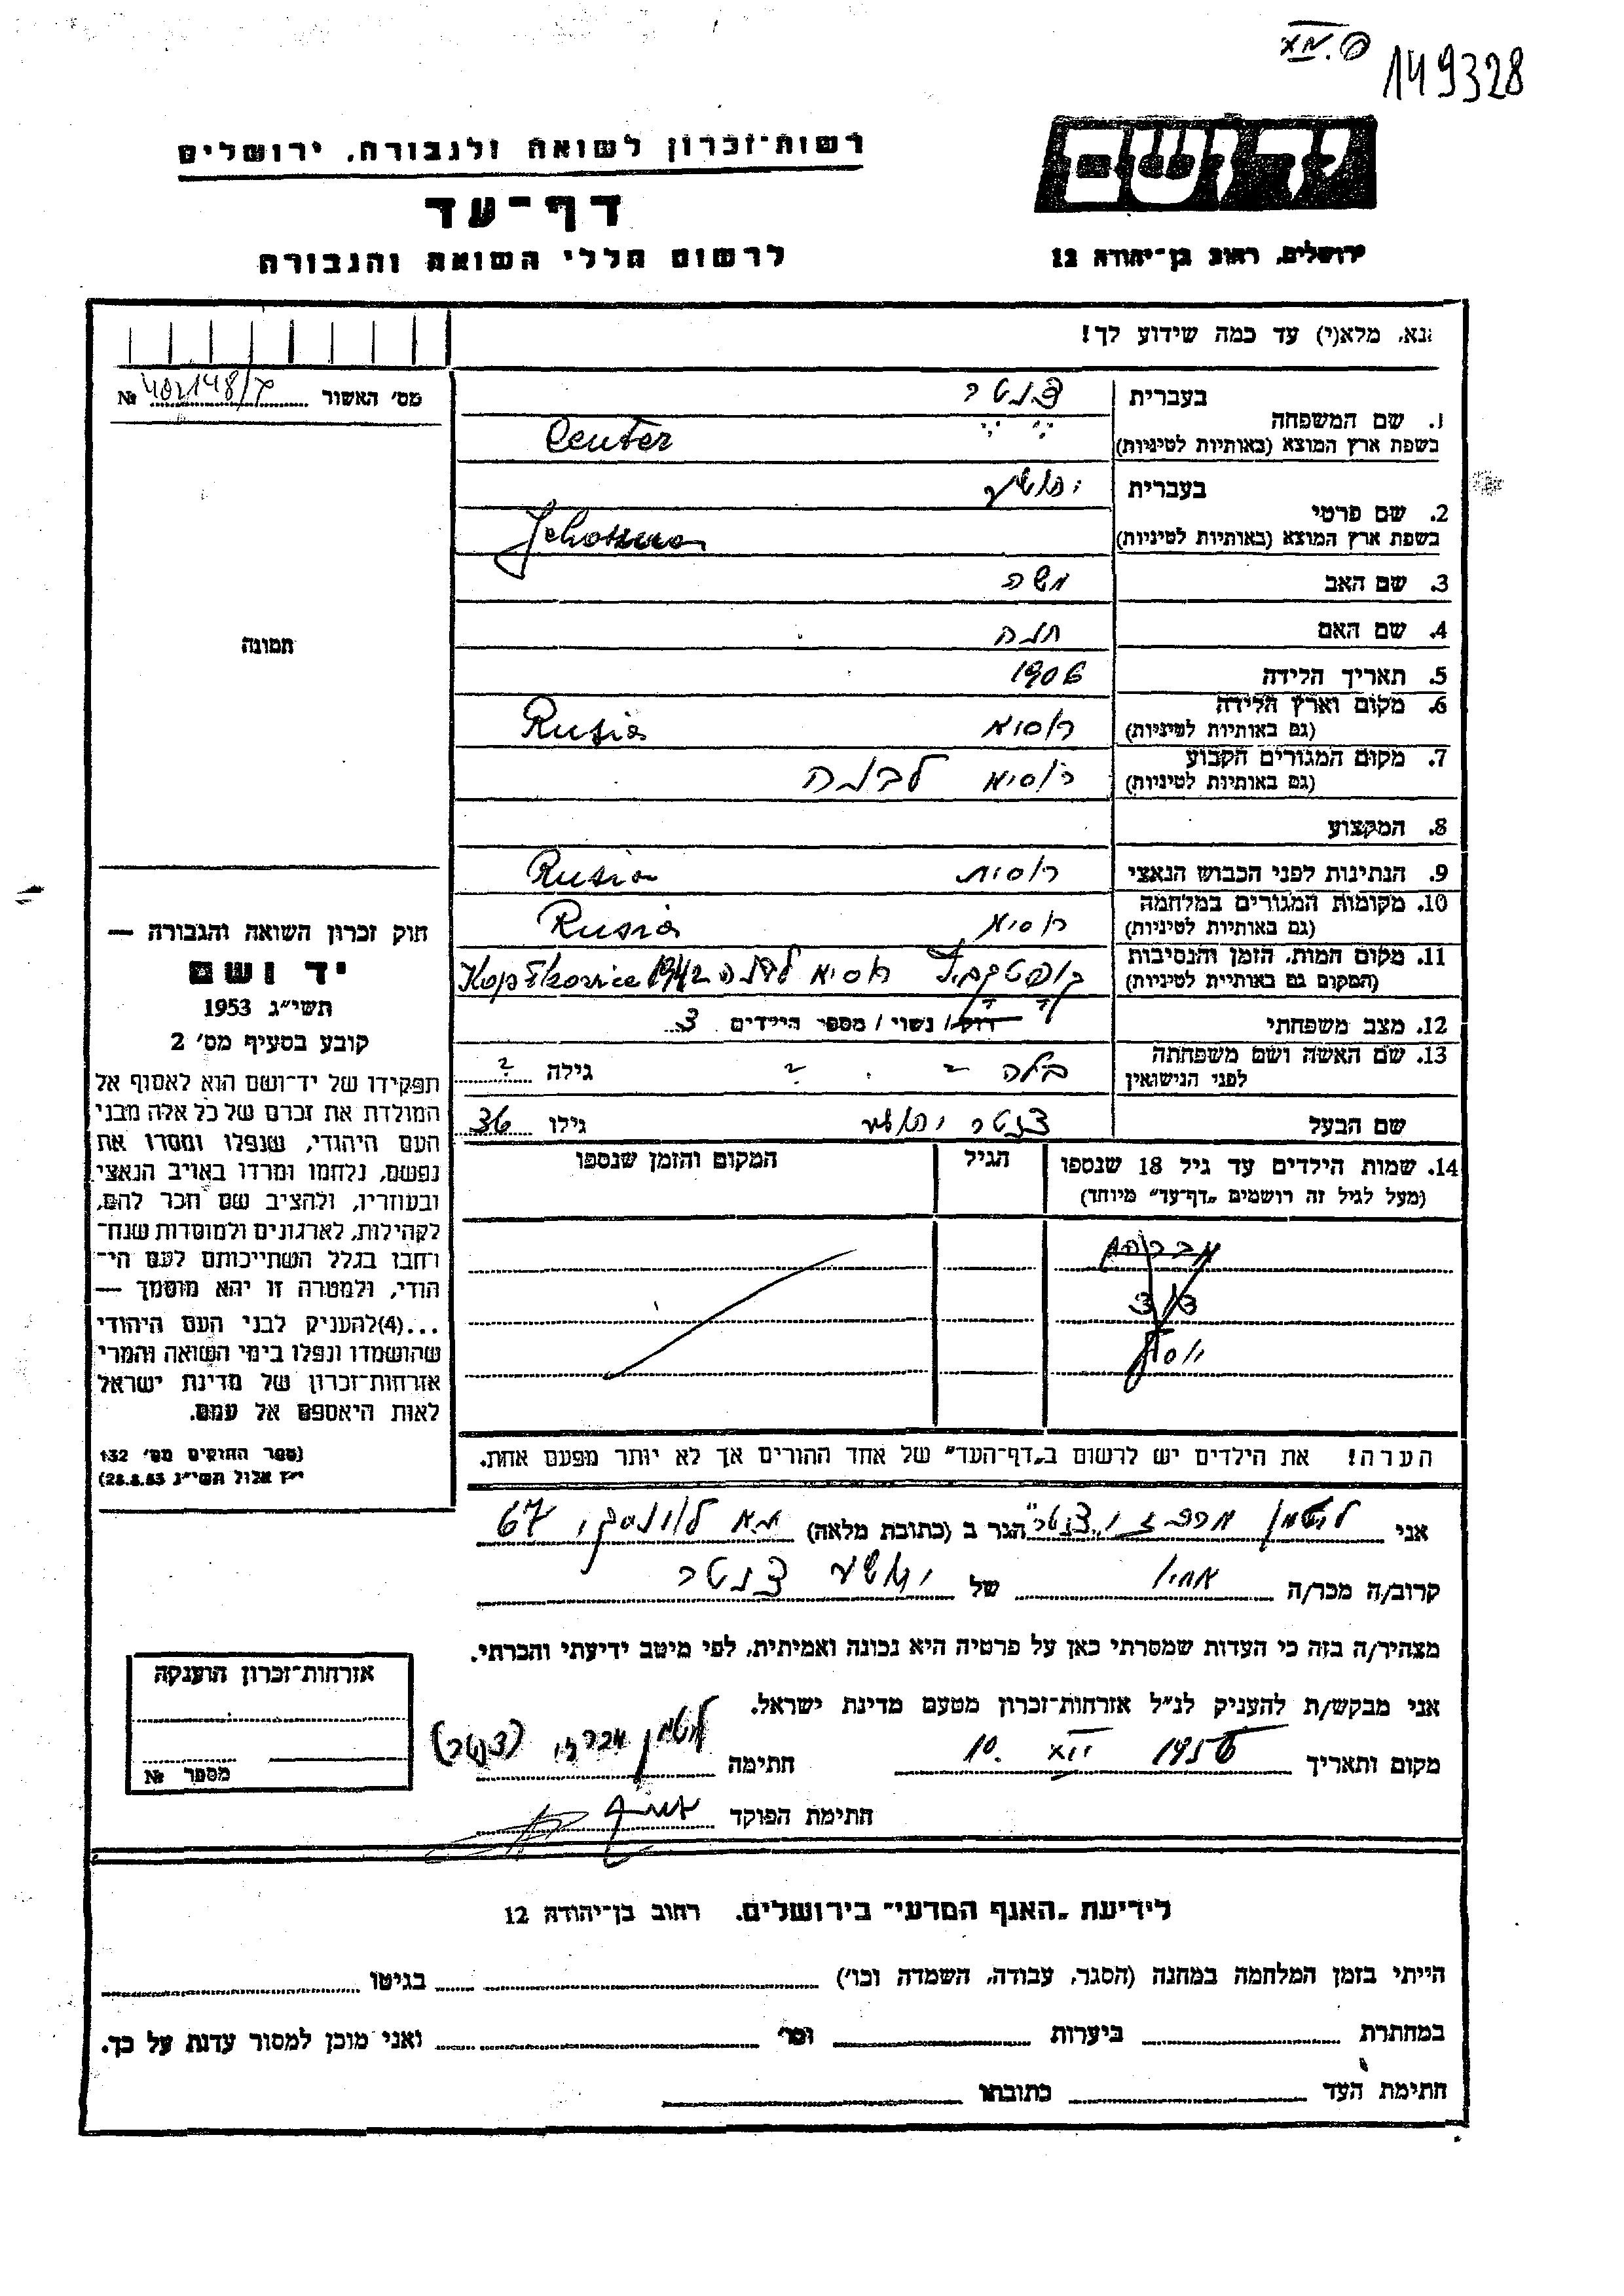 149328
רשות־זכרון לשואה ולגבורה, ירושלים
דף־עד
לרשום חללי השואה והגבורה
ירושלים, רחוב בן־יהודה 12
נא, מלא(י) עד כמה שידוע לך!
מס׳ האשור № 402148/ל
1. שם המשפחה
בעברית צנטר
בשפת ארץ המוצא (באותיות לטיניות) Center
2. שם פרטי
בעברית יהושע
בשפת ארץ המוצא (באותיות לטיניות)
3. שם האב משה
4. שם האם חנה
5. תאריך הלידה 1906
6. מקום וארץ הלידה רוסיא Rusia
(גם באותיות לטיניות)
7. מקום המגורים הקבוע רוסיא
(גם באותיות לטיניות)
8. המקצוע
9. הנתינות לפני הכבוש הנאצי רוסית Rusia
10. מקומות המגורים במלחמה רוסיא Rusia
(גם באותיות לטיניות)
11. מקום המות, הזמן והנסיבות רוסיא 1942
(המקום גם באותיית לטיניות)
12. מצב משפחתי רווק / נשוי / מספר הילדים 3
13. שם האשה ושם משפחתה בלה - ? גילה ?
לפני הנישואין
שם הבעל צנטר יהושע גילו 36
14. שמות הילדים עד גיל 18 שנספו הגיל המקום והזמן שנספו
(מעל לגיל זה רושמים „דף־עד״ מיוחד)
אברהם
יוסף
הערה! את הילדים יש לרשום ב„דף־העד״ של אחד ההורים אך לא יותר מפעם אחת.
תמונה
חוק זכרון השואה והגבורה —
יד ושם
תשי״ג 1953
קובע בסעיף מס׳ 2
תפקידו של יד־ושם הוא לאסוף אל
המולדת את זכרם של כל אלה מבני
העם היהודי, שנפלו ומסרו את
נפשם, נלחמו ומרדו באויב הנאצי
ובעוזריו, ולהציב שם וזכר להם,
לקהילות, לארגונים ולמוסדות שנח־
רחבו בגלל השתייכותם לעם הי־
הודי, ולמטרה זו יהא מוסמך —
...(4)להעניק לבני העם היהודי
שהושמדו ונפלו בימי השואה והמרי
אזרחות־זכרון של מדינת ישראל
לאות היאספם אל עמם.
(ספר החוקים מס׳ 132
י״ז אלול תשי״ג 28.8.53)
אני צנטר הגר ב (כתובת מלאה) ת״א 67
קרוב/ה מכר/ה אחיו של יהושע צנטר
מצהיר/ה בזה כי העדות שמסרתי כאן על פרטיה היא נכונה ואמיתית, לפי מיטב ידיעתי והכרתי.
אני מבקש/ת להעניק לנ״ל אזרחות־זכרון מטעם מדינת ישראל.
מקום ותאריך 10. XII 1956 חתימה (צנטר)
חתימת הפוקד
אזרחות־זכרון הוענקה
מספר №
לידיעת „האגף המדעי״ בירושלים. רחוב בן־יהודה 12
הייתי בזמן המלחמה במחנה (הסגר, עבודה, השמדה וכו׳) בגיטו
במחתרת ביערות וכו׳ ואני מוכן למסור עדות על כך.
חתימת העד כתובתו